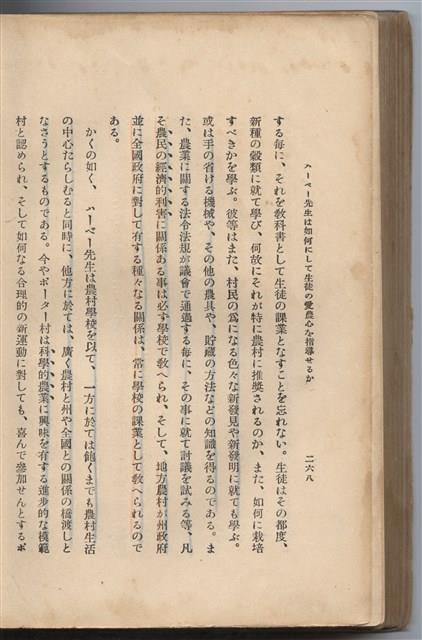 ハーベー先生は如何にして生徒の愛農心を指導せるか
二六八
する毎に、それを敎科書として生徒の課業となすことを忘れない。生徒はその都度、
新種の穀類に就て學び、何故それが特に農村に推奬されるのか、また、如何に栽培
すべきかを學ぶ。彼等はまた、村民の爲になる色々な新發見や新發明に就ても學ぶ。
或は手の省ける機械や、その他の農具や、貯藏の方法などの知識を得るのである。ま
た、農業に關する法令法規が議會で通過する每に、その事に就て討議を試みる等、凡
そ農民の經濟的利害に關係ある事は必ず學校で敎へられ、そして、地方農村が州政府
並に全國政府に對して有する種々なる關係は、常に學校の課業として敎へられるので
ある。
かくの如く、ハーベー先生は農村學校を以て、一方に於ては飽くまでも農村生活
の中心たらしむると同時に、他方に於ては、廣く農村と州や全國との關係の橋渡しと
なさうとするものである。今やポーター村は科學的農業に興味を有する進步的な模範
村と認められ、そして如何なる合理的の新運動に對しても、喜んで參加せんとするポ